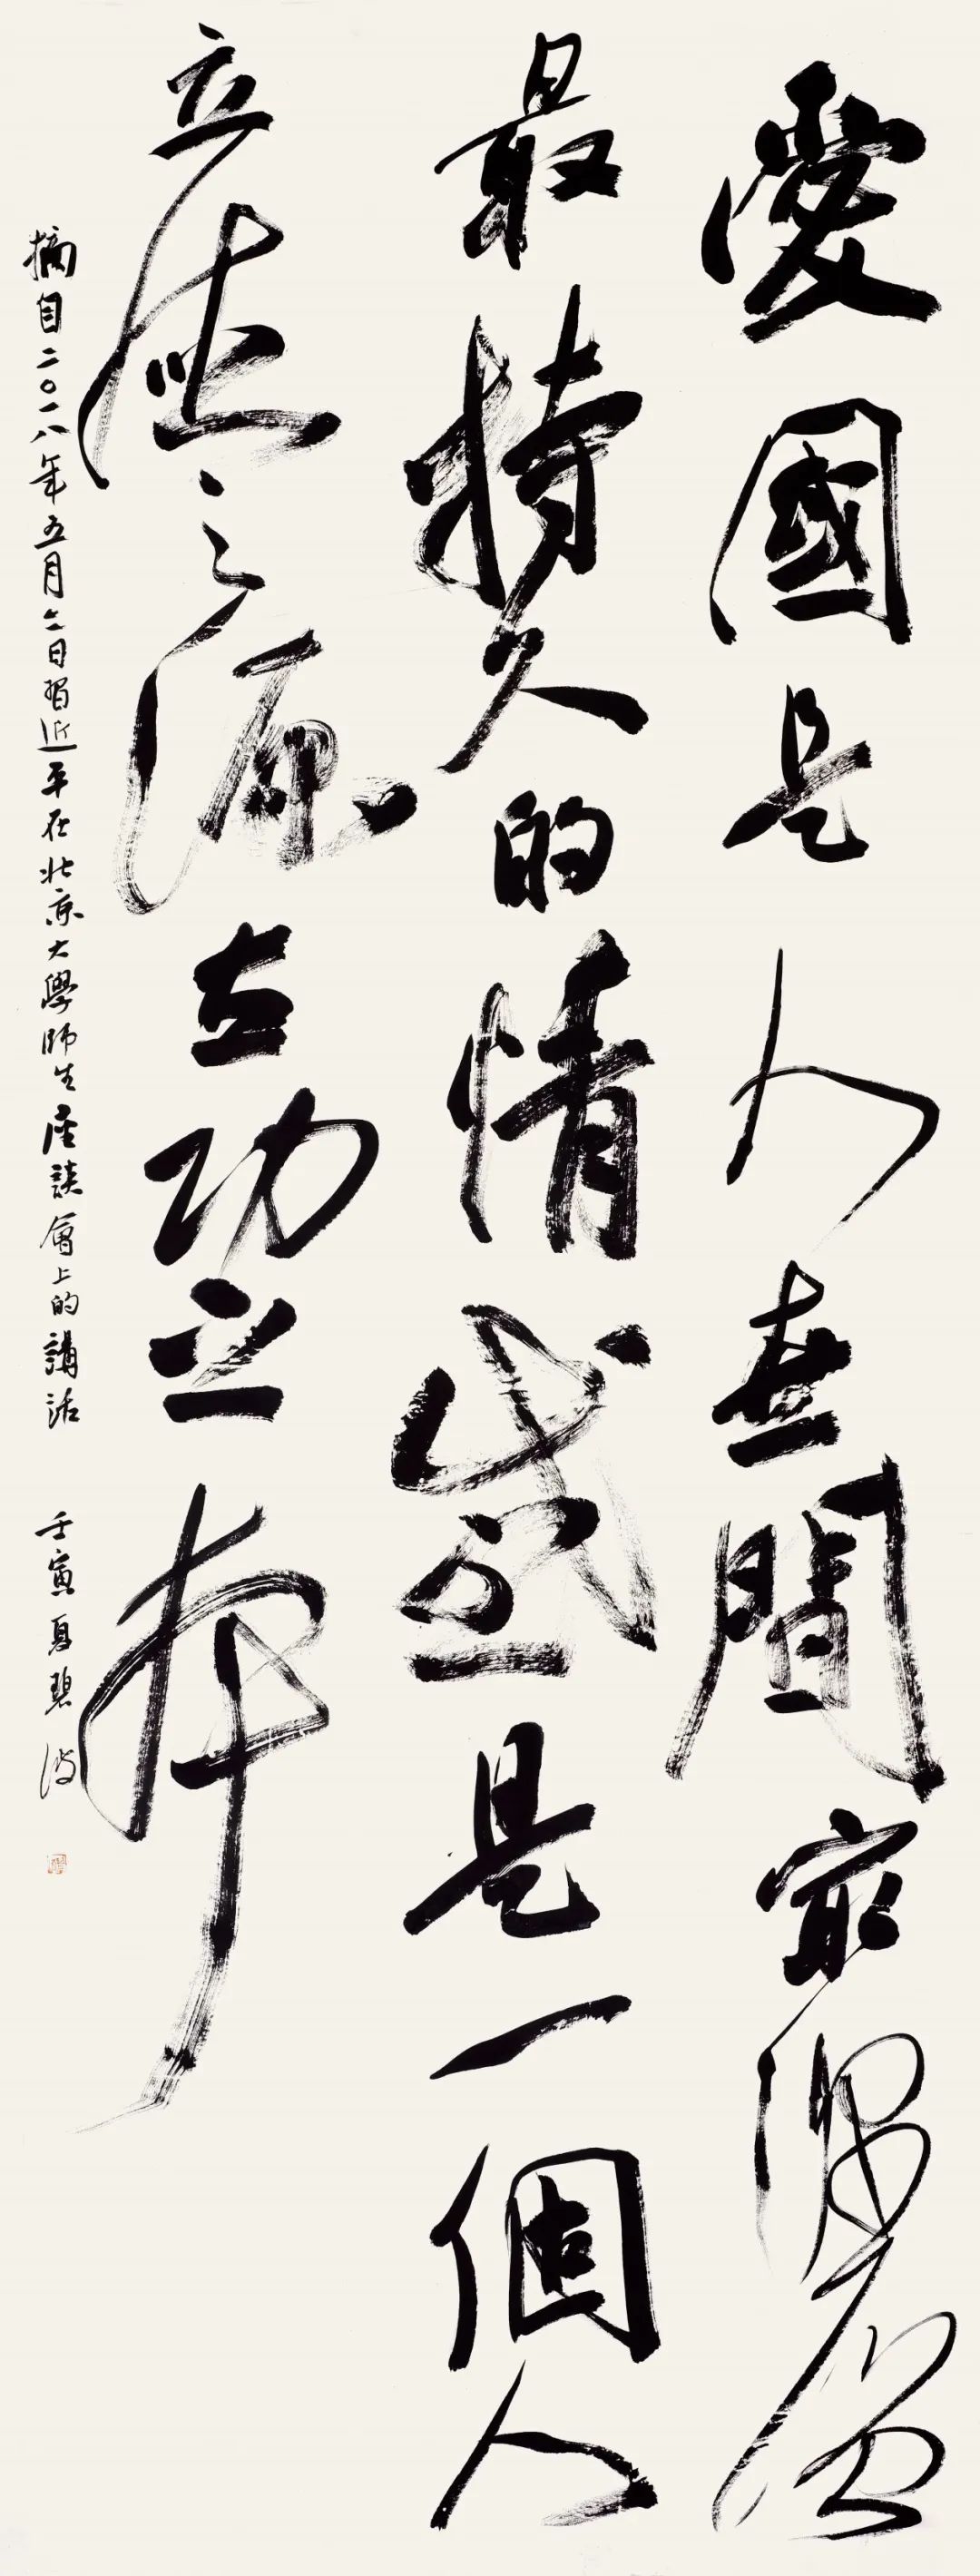 愛國是人世間最深層
最持久的情感是一個人
立德之源立功之本
摘自二〇一八年五月二日習近平在北京大學師生座談會上的講話 壬寅夏碧波